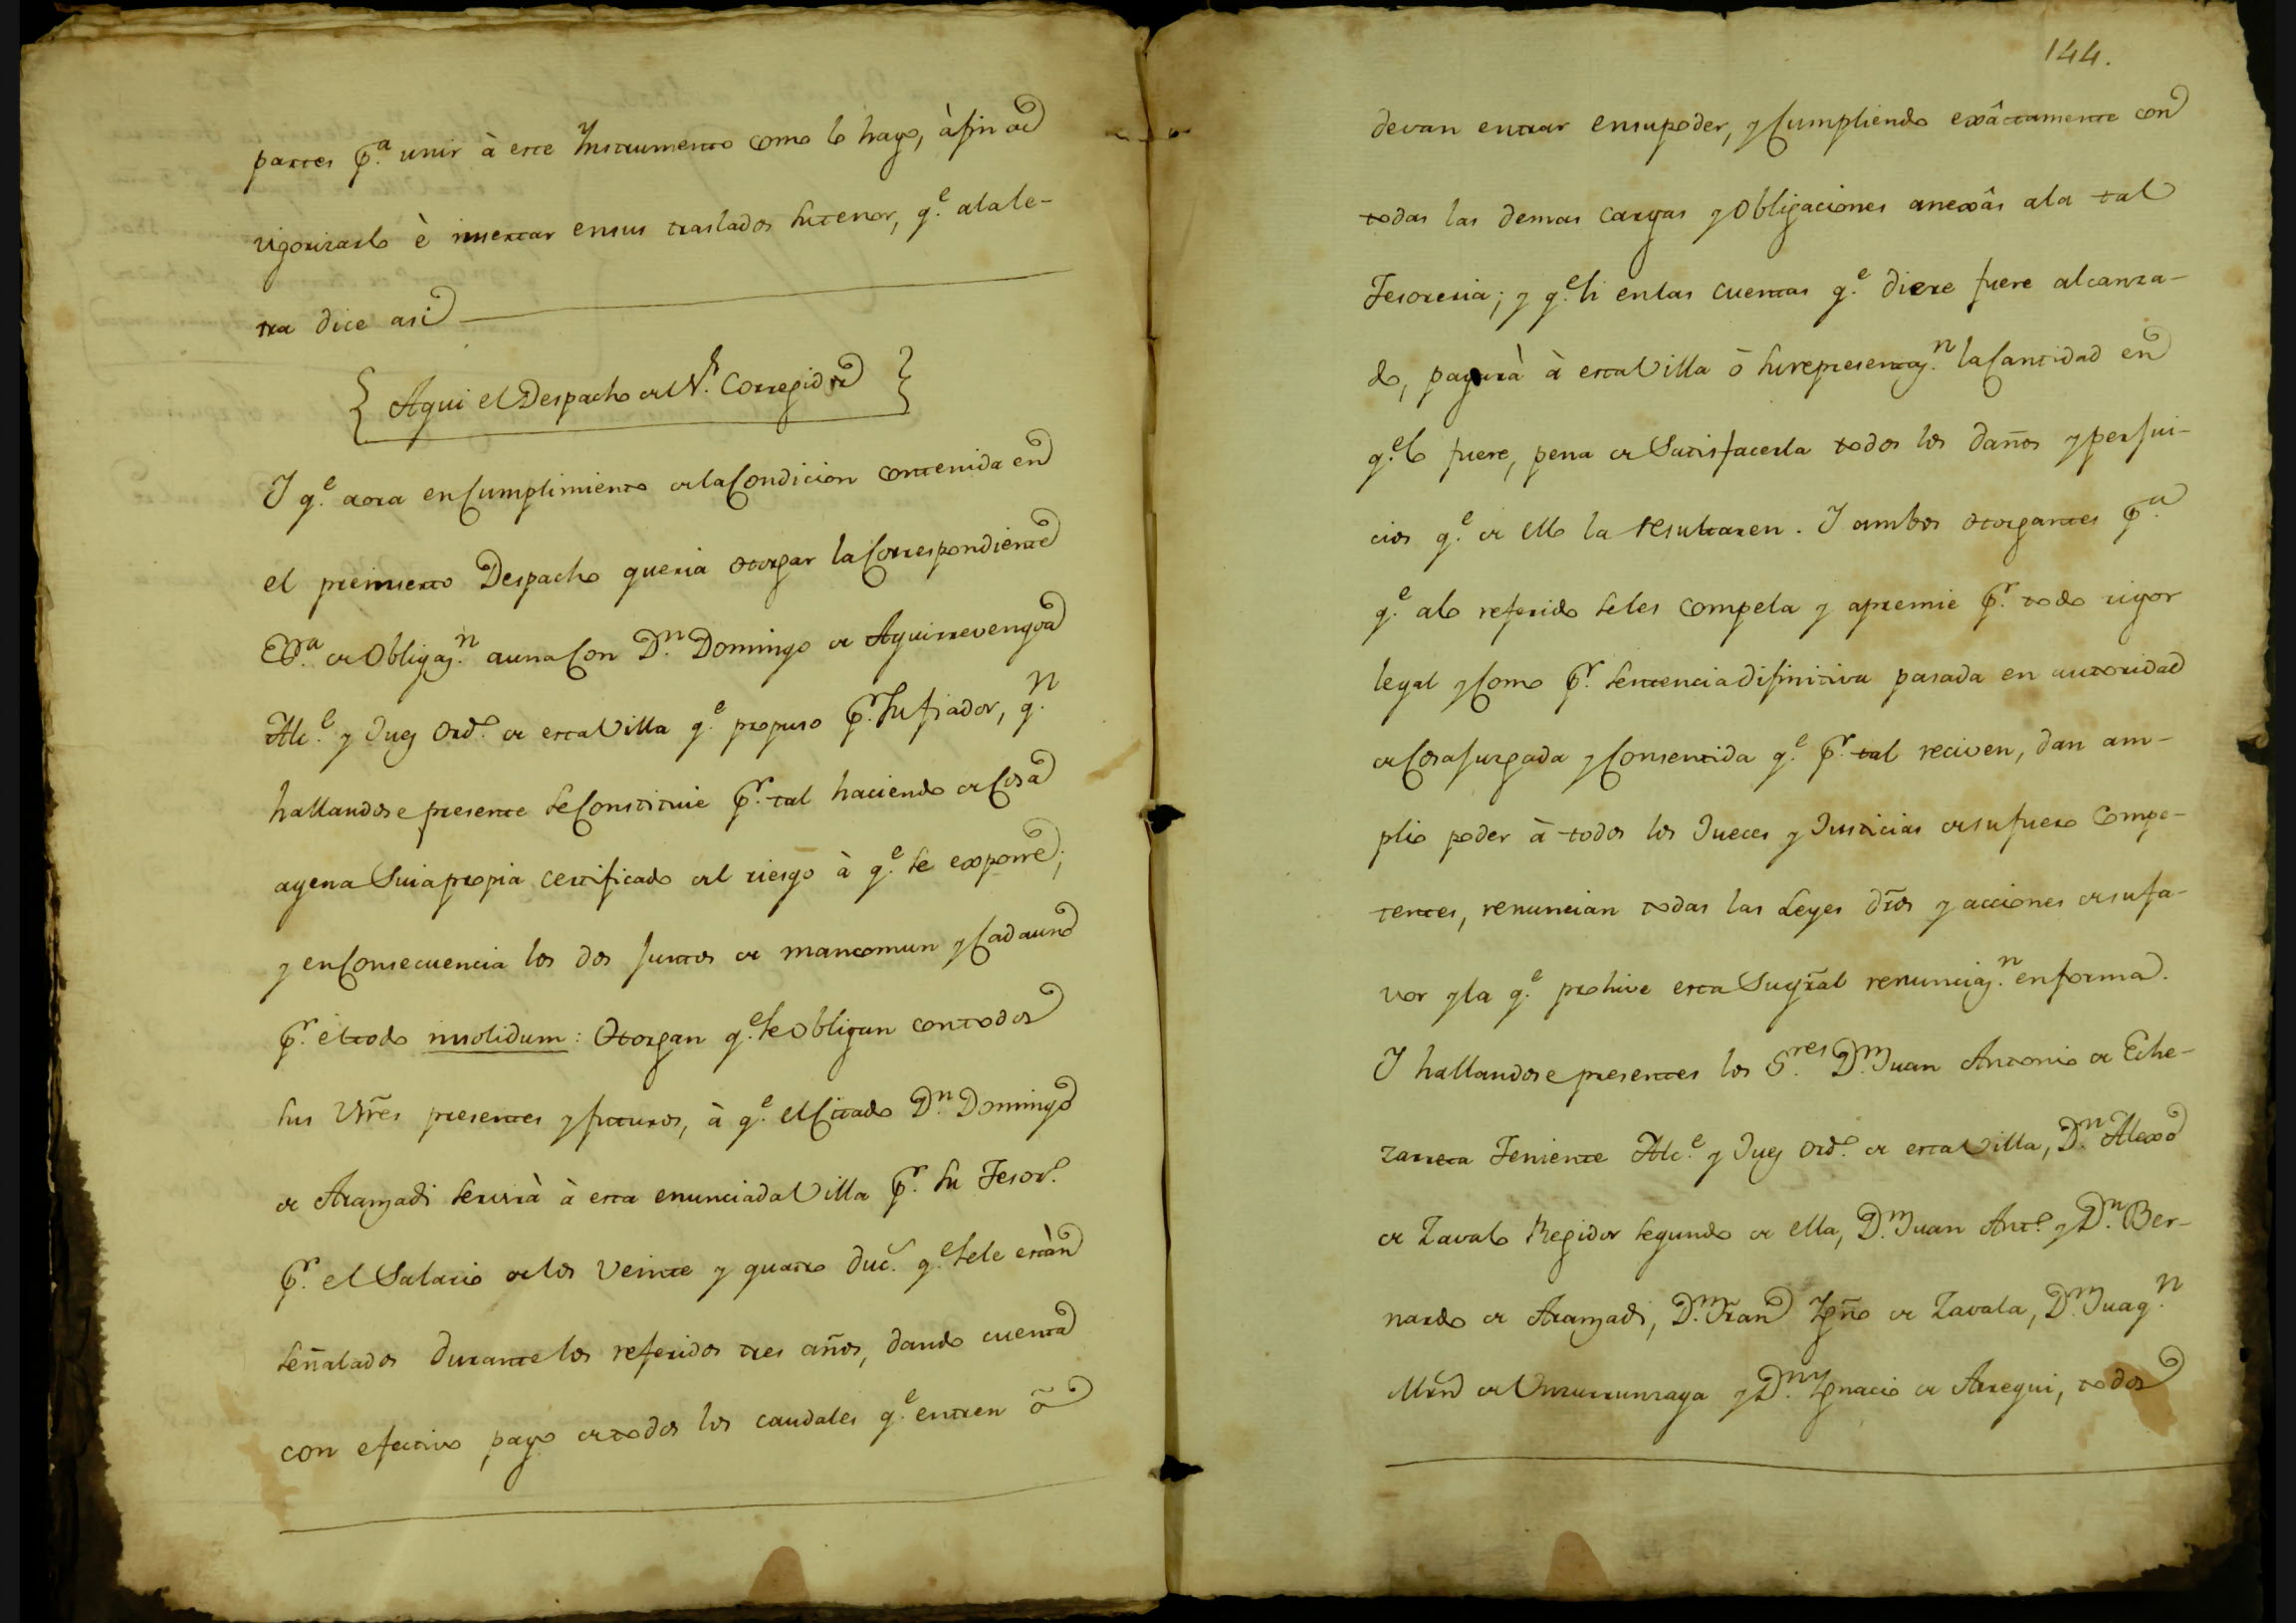 partes p.ª unir à este Instrumento como lo hago, à fin de
vigorizarlo è insertar en sus traslados su tenor, q.e ala le-
tra dice asi
{ Aqui el Despacho del S.r Corregidor }
I q.e aora en Cumplimiento de la Condicion contenida en
el preinserto Despacho queria otorgar la Correspondiente
Es.ª de Obligaz.n auna Con D.n Domingo de Aguirrevengoa
Alc.e y Juez Ord.o de esta Villa q.e propuso p.r su fiador, q.n
hallandose presente se Constituie p.r tal haciendo de Cosa
agena Suia propia certificado del riesgo à q.e se expone;
y en Consecuencia los dos Juntos de mancomun y Cada uno
p.r el todo insolidum: Otorgan q.e se Obligan con todos
sus Vñes presentes y futuros, à q.e el Citado D.n Domingo
de Aramadi servirà à esta enunciada Villa p.r su Tesor.o
p.r el Salario de los veinte y quatro duc.s q.e se le estàn
señalados durante los referidos tres años, dando cuenta
con efectivo pago de todos los caudales q.e entren õ
144.
devan entrar en su poder, y Cumpliendo exâctamente con
todas las demas cargas y Obligaciones anexâs ala tal
Tesoreria; y q.e si en las cuentas q.e diere fuere alcanza-
do, pagarà à esta Villa ò su representaz.n la Cantidad en
q.e lo fuere, pena de Satisfacerla todos los daños y perjui-
cios q.e de ello la resultaren. I ambos otorgantes p.ª
q.e alo referido seles compela y apremie p.r todo rigor
legal y Como p.r sentencia difinitiva pasada en autoridad
de Cosa Juzgada y Consentida q.e p.r tal reciven, dan am-
plio poder à todos los Jueces y Justicias de su fuero Compe-
tentes, renuncian todas las Leyes dr̃os y acciones de su fa-
vor y la q.e prohive esta Su gr̃al renunciaz.n en forma.
I hallandose presentes los S.res D.n Juan Antonio de Eche-
zarreta Teniente Alc.e y Juez Ord.o de esta Villa, D.n Alexo
de Zavalo Regidor segundo de ella, D.n Juan Ant.o y D.n Ber-
nardo de Aramadi, D.n Fran Ygñ.o de Zavala, D.n Juaq.n
Mrñ de Unzurrunzaga y D.n Ygnacio de Arregui, todos